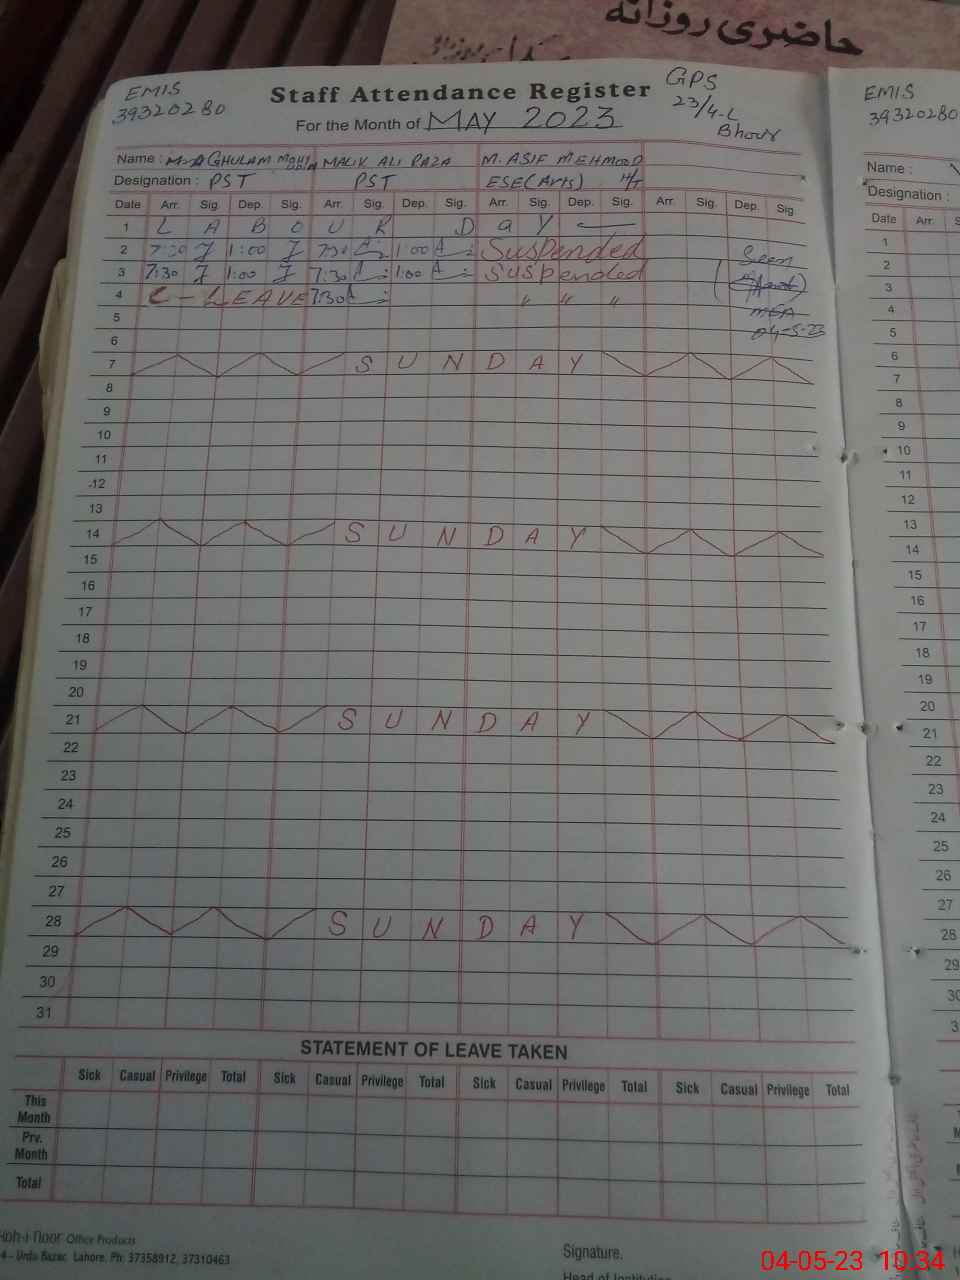 حاضری روزانہ
EMIS
39320280
Staff Attendance Register
GPS
23/4-L
Bhour
For the Month of MAY 2023
Name : GHULAM MALIK ALI RAZA M. ASIF MEHMOOD
Designation : PST PST ESE (Arts) H/T
Date Arr. Sig. Dep. Sig. Arr. Sig. Dep. Sig. Arr. Sig. Dep. Sig. Arr. Sig. Dep. Sig.
1 L A B O U R D a Y
2 7:30 1:00 7:30 1:00 Suspended Seen
3 7:30 1:00 7:30 1:00 Suspended
4 C-LEAVE 7:30 " " " MEA
5 04-5-23
6
7 S U N D A Y
8
9
10
11
12
13
14 S U N D A Y
15
16
17
18
19
20
21 S U N D A Y
22
23
24
25
26
27
28 S U N D A Y
29
30
31
STATEMENT OF LEAVE TAKEN
Sick Casual Privilege Total Sick Casual Privilege Total Sick Casual Privilege Total Sick Casual Privilege Total
This Month
Prv. Month
Total
Office Products
Urdu Bazar, Lahore. Ph: 37358912, 37310463
Signature.
Head of Institution
EMIS
39320280
Name :
Designation :
Date Arr. Sig.
1
2
3
4
5
6
7
8
9
10
11
12
13
14
15
16
17
18
19
20
21
22
23
24
25
26
27
28
29
30
04-05-23 10:34